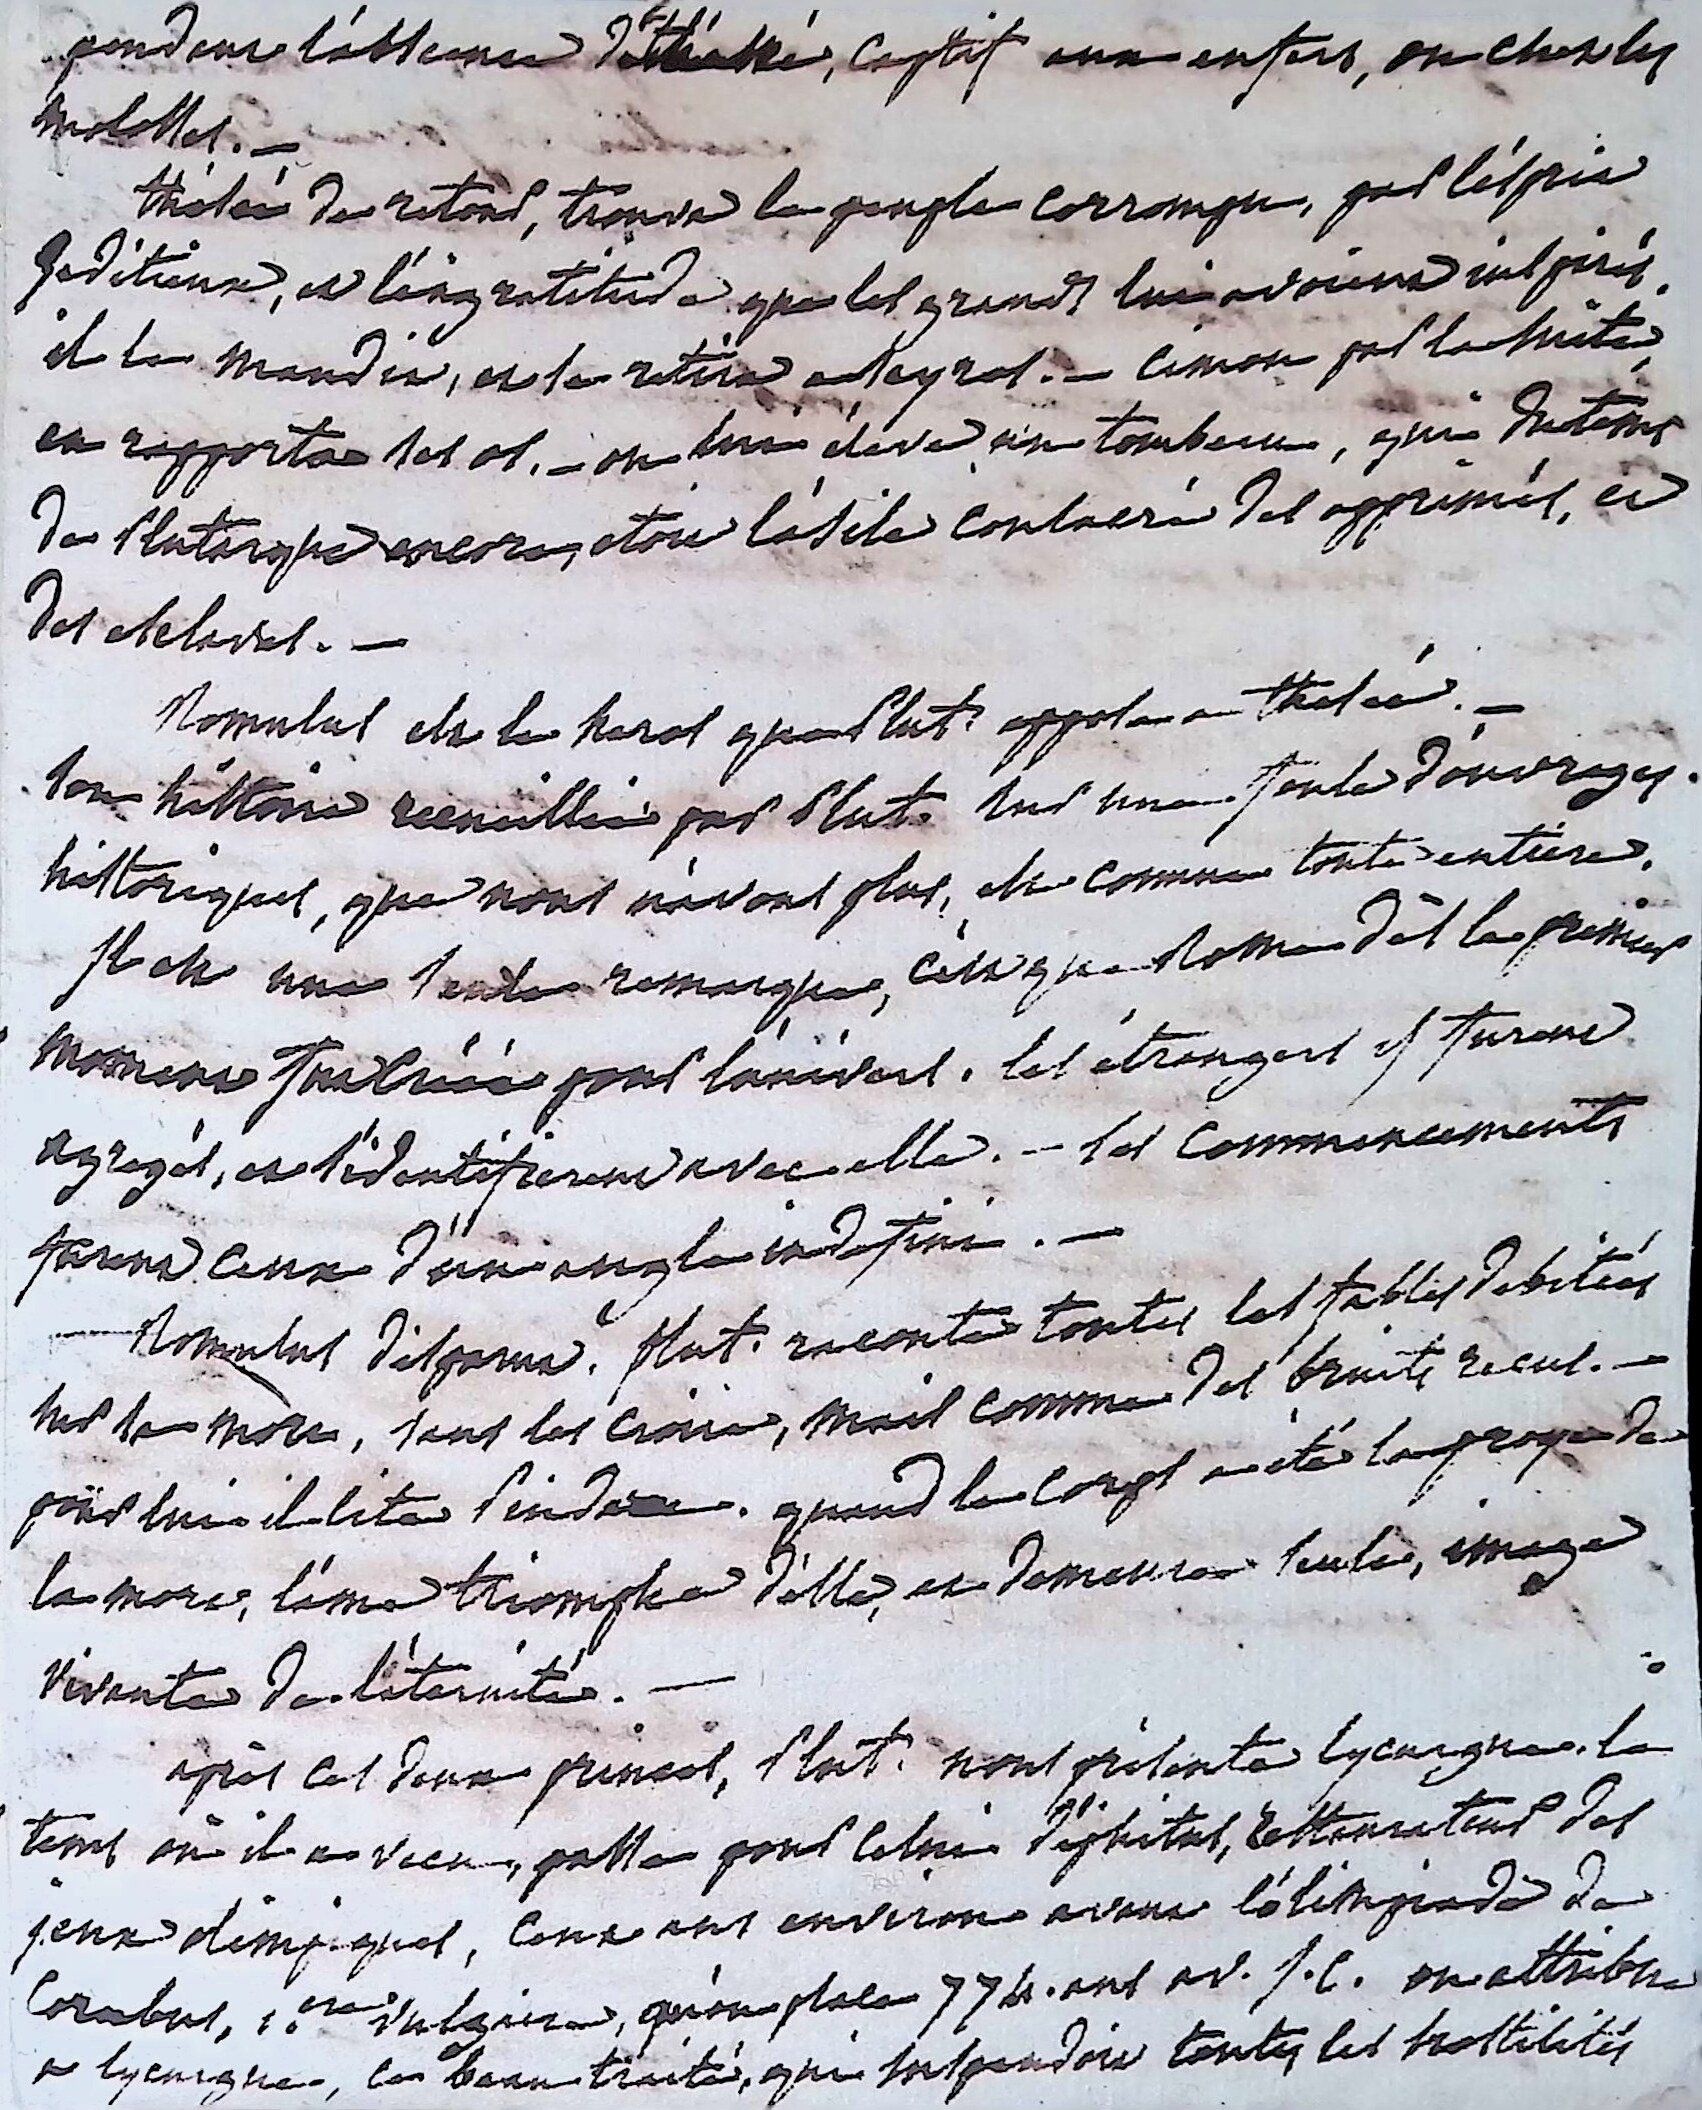 pendant l'absence de thésée, captif aux enfers, ou chez les
molosses. —
thésée de retour, trouva le peuple corrompu, par l'esprit
séditieux, et l'ingratitude que les grands lui avoient inspirés.
il le maudit, et se retira a scyros. — cimon par la suite,
en rapporta ses os. — on lui éleva un tombeau, qui du tems
de Plutarque encore, etoit l'asile consacré des opprimés, et
des esclaves. —
Romulus est le heros que Plut. oppose a thesée. —
son histoire recueillie par Plut. sur une foule d'ouvrages
historiques, que nous n'avons plus, est connue toute entière.
Il est une seule remarque, c'est que Rome dès le premier
moment fut créée pour l'univers. les étrangers y furent
agregés, et s'identifierent avec elle. — ses commencements
furent ceux d'un angle indefini. —
— Romulus disparut. Plut. raconte toutes les fables debitées
sur sa mort, sans les croire, mais comme des bruits recus. —
pour lui il cite Pindare. quand le corps a été la proye de
la mort, l'ame triomphe d'elle, et demeure seule, image
vivante de l'éternité. —
après ces deux princes, Plut. nous présente lycurgue. le
tems où il a vecu, passe pour celui d'iphitus, restaurateur des
jeux olimpiques, cent ans environ avant l'olimpiade de
Corebus, 1.ere vulgaire, qu'on place 774. ans av. J.C. on attribue
a lycurgue, ce beau traité, qui suspendoit toutes les hostilités